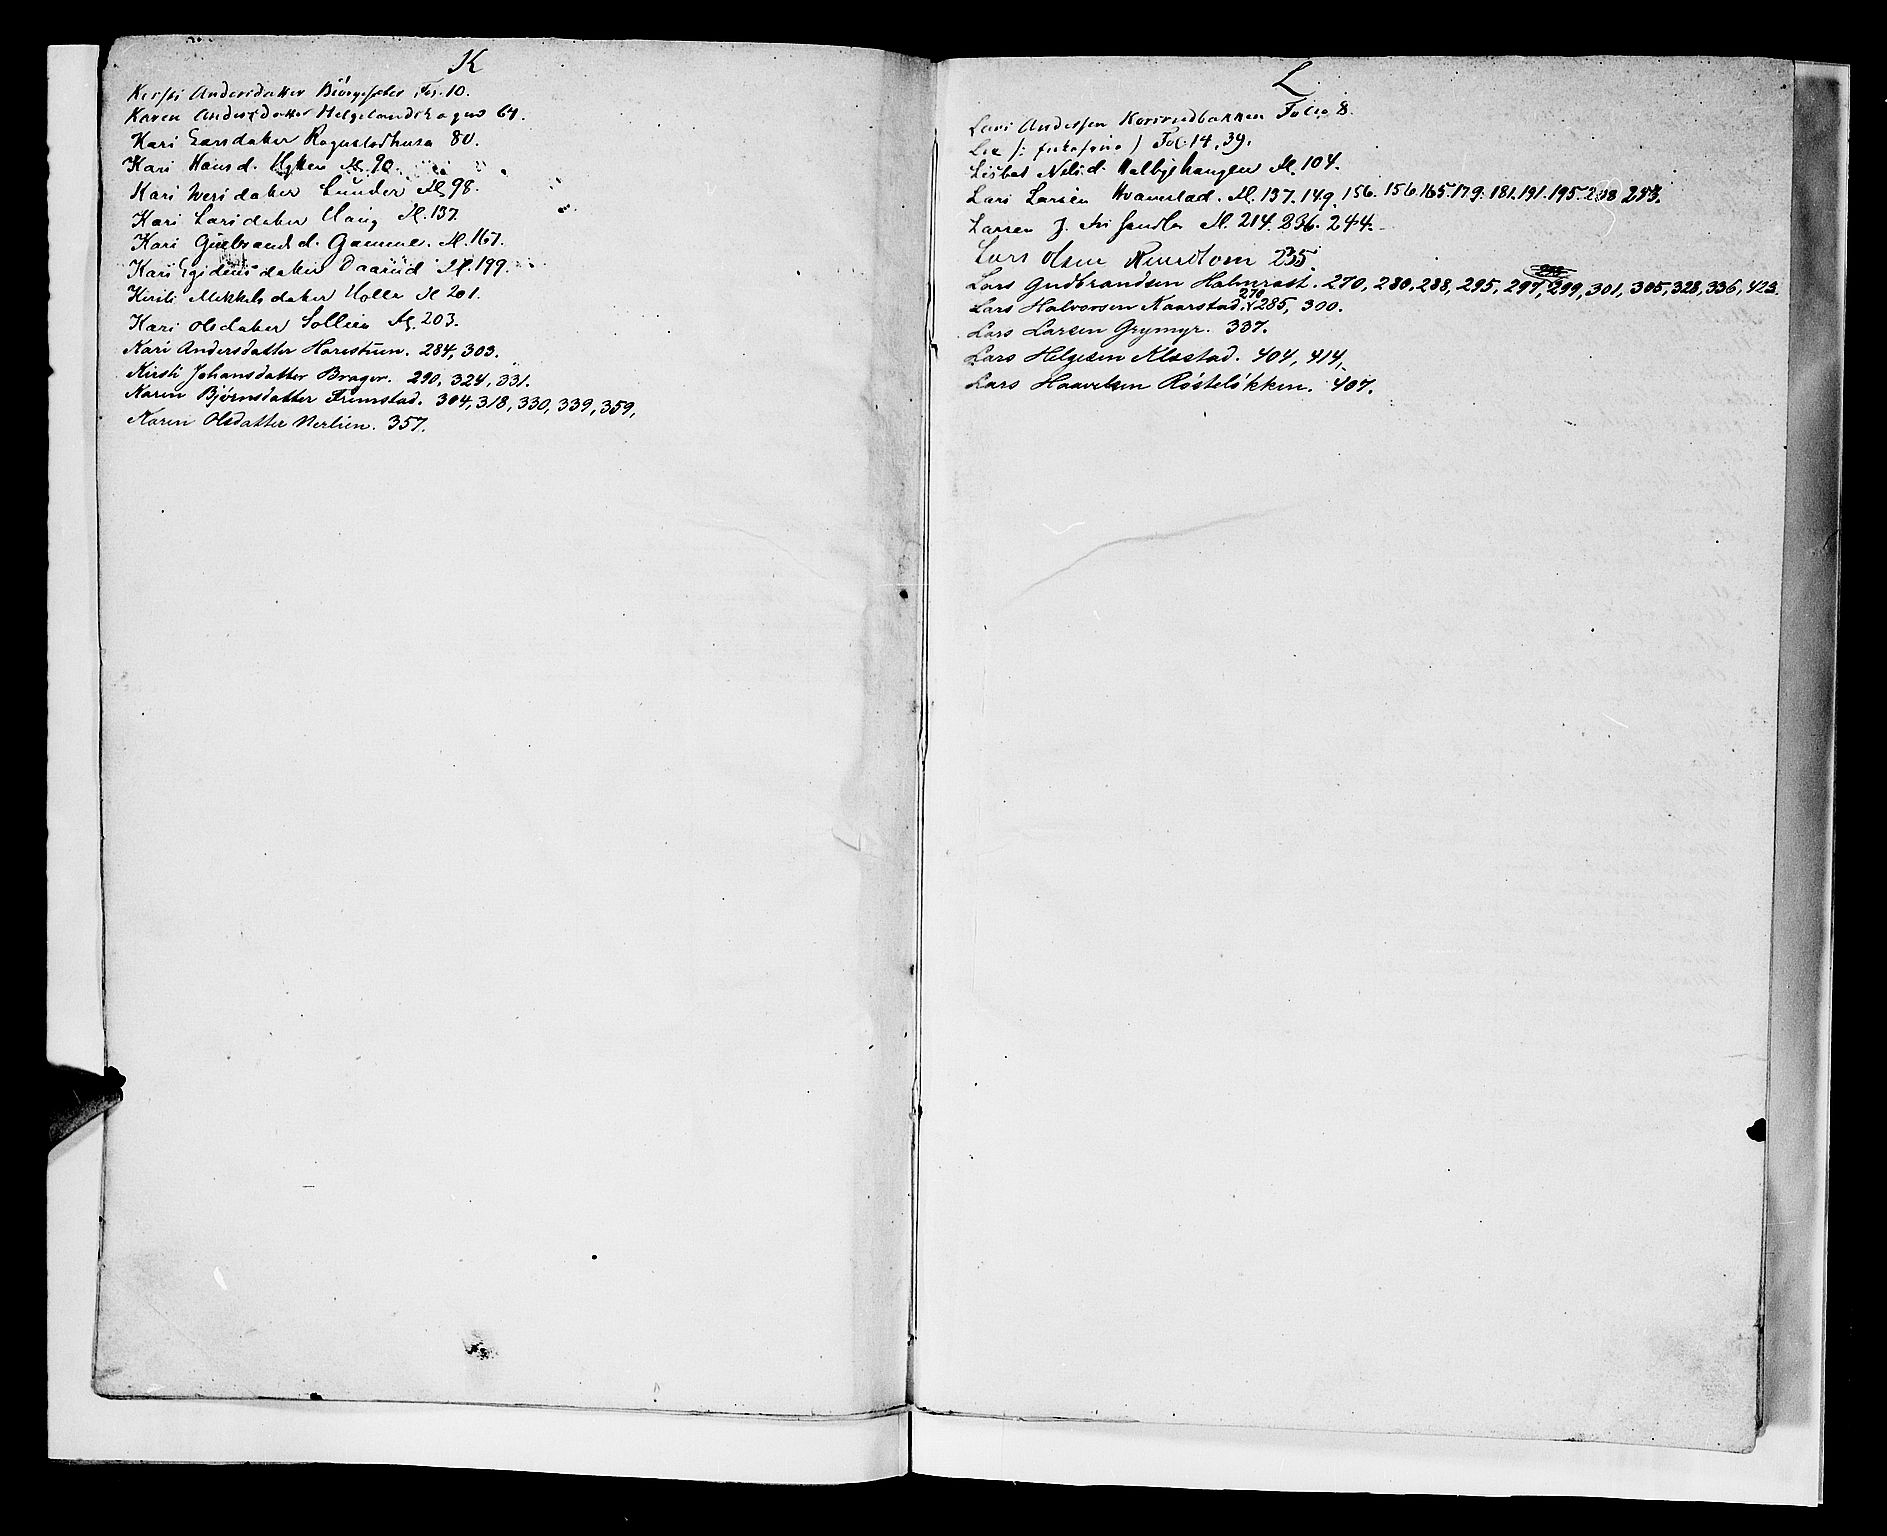 K
Kirsti Andersdatter Biörgesæter Fol. 10.
Karen Andersdatter Helgelandskagen 64.
Kari Larsdatter Rognstadhusa 80.
Kari Hansd. M. 90.
Kari Iversdatter Lunder M. 98.
Kari Larsdatter Haug M. 137.
Kari Gulbrandsd. Gamme. M. 167.
Kari Egidensdatter Daarud M. 199.
Kirsti Mikkelsdatter Holla M. 201.
Kari Olsdatter Sollien M. 203.
Kari Andersdatter Harestuen. 284, 303.
Kirsti Johansdatter Brager. 290, 324, 331.
Karen Bjørnsdatter Framstad. 304, 318, 330, 339, 359,
Karen Olsdatter Nerlien. 357.
L
Lars Andersen Folio 8.
Lie Fol. 14, 39.
Lisbet Nelsd. Valbyehaugen M. 104.
Lars Larsen Hvamstad. M. 137. 149. 156. 156. 165. 179. 181. 191. 195. 208 253.
Larsen J. M. 214. 236. 244.
Lars Olsen 235
Lars Gudbrandsen Halmrast. 270, 280, 288, 295, 297, 299, 301, 305, 328, 336, 423.
Lars Halvorsen Kaarstad. 270 285, 300.
Lars Larsen Grymyr. 337.
Lars Helgesen Klæstad. 404, 414,
Lars Haavelsen Røsteløkken. 407.